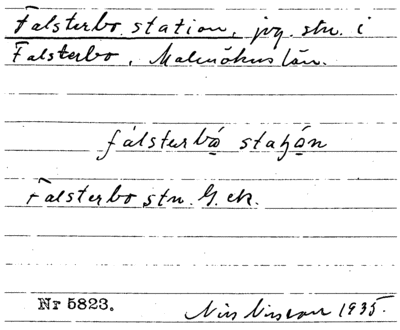 Falsterbo station, jvg. stn. i
Falsterbo, Malmöhus län.
fálsterbọ̀ staʃọ́n
Falsterbo stn. G. ek.
Nr 5823.
Nils Nilsson 1935.